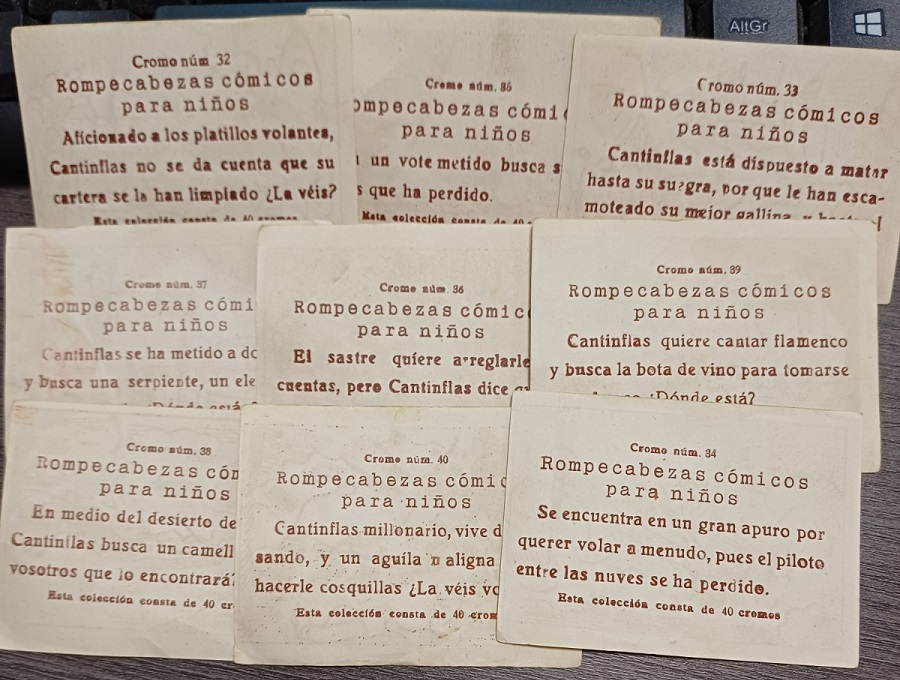 AltGr
Cromo núm 32
Rompecabezas cómicos
para niños
Aficionado a los platillos volantes,
Cantinflas no se da cuenta que su
cartera se la han limpiado ¿La véis?
Esta colección consta de 40 cromos
Cromo núm. 35
para niños
un vote metido busca
que ha perdido.
Esta colección consta de 40
Cromo núm. 33
Rompecabezas cómicos
para niños
Cantinflas está dispuesto a matar
hasta su su?gra, por que le han esca-
moteado su mejor gallina
Cromo núm. 37
Rompecabezas cómi
para niños
Cantinflas se ha metido a do
y busca una serpiente, un ele
Cromo núm. 36
Rompecabezas cómic
para niños
El sastre quiere arreglarle
cuentas, pero Cantinflas dice
Cromo núm. 39
Rompecabezas cómicos
para niños
Cantinflas quiere cantar flamenco
y busca la bota de vino para tomarse
¿Dónde está?
Cromo núm. 38
Rompecabezas cóm
para niños
En medio del desierto de
Cantinflas busca un camell
vosotros que lo encontrará
Esta colección consta de 40 cr
Cromo núm. 40
Rompecabezas cómic
para niños
Cantinflas millonario, vive d
sando, y un aguíla n aligna
hacerle cosquillas ¿La véis vo
Esta colección consta de 40 crom
Cromo núm. 34
Rompecabezas cómicos
para niños
Se encuentra en un gran apuro por
querer volar a menudo, pues el piloto
entre las nuves se ha perdido.
Esta colección consta de 40 cromos